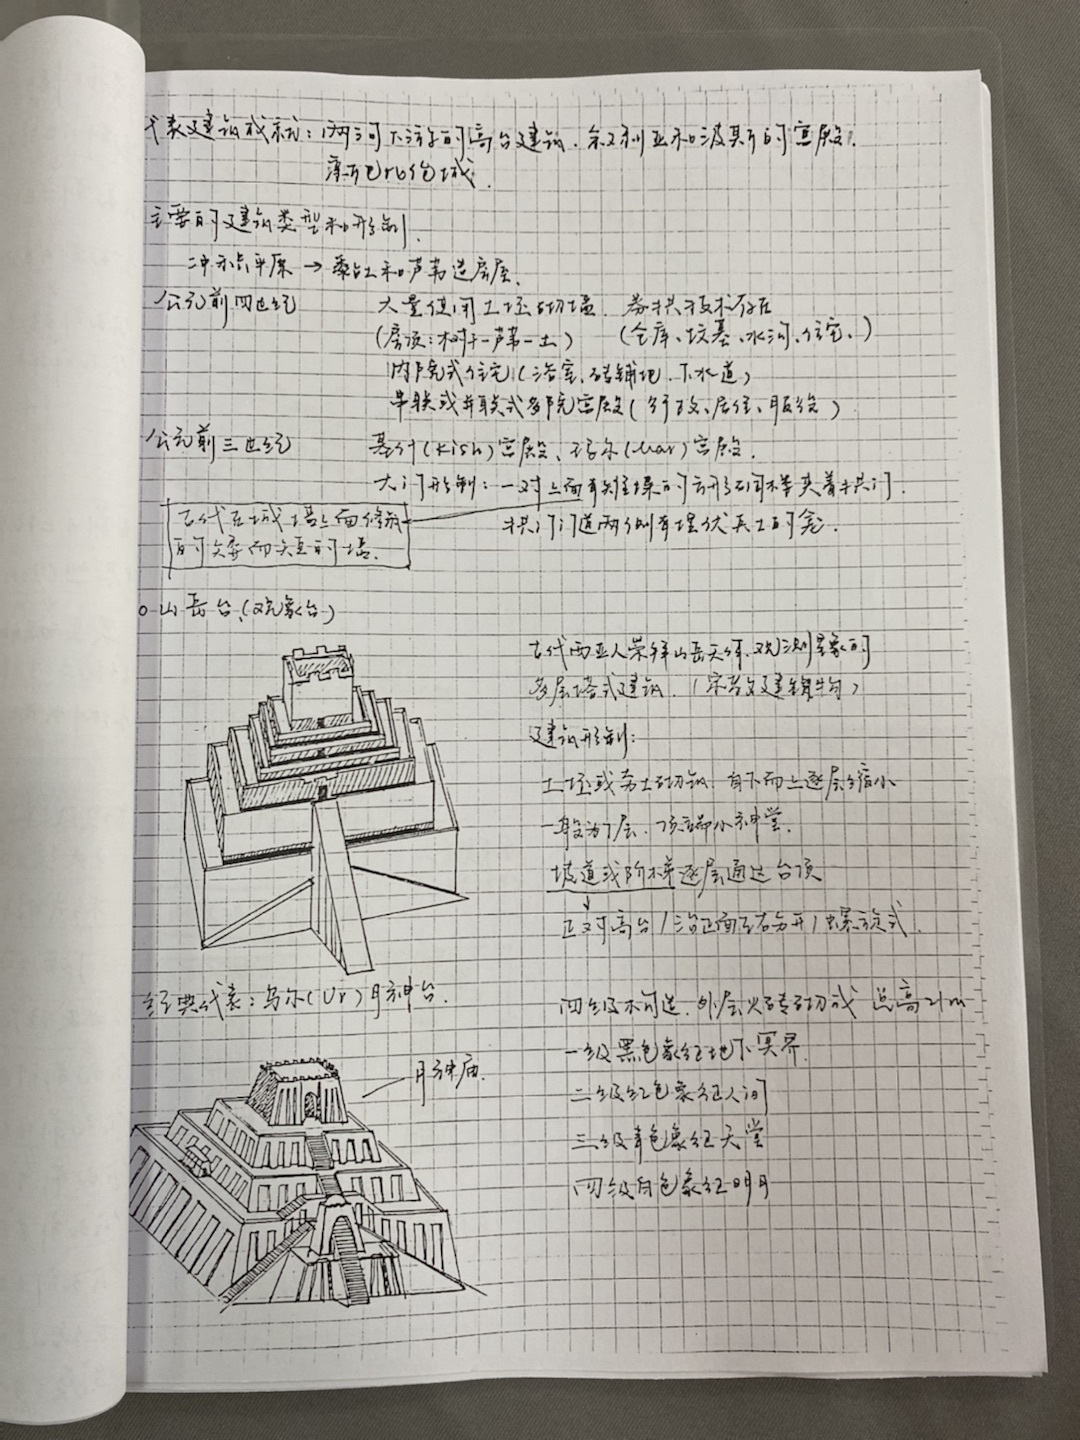 代表建筑成就：两河下游的高台建筑、叙利亚和波斯的宫殿、
新巴比伦城.
主要的建筑类型和形制.
冲积平原→黏土和芦苇造房屋.
公元前四世纪 大量使用土坯砌墙. 券拱技术存在
(房顶：树干－芦苇－土) (仓库、坟墓、水沟、住宅、)
内院式住宅(浴室、砖铺地、下水道)
串联或并联式多院宫殿(行政、居住、服役)
公元前三世纪 基什(Kish)宫殿、玛尔(Mar)宫殿.
大门形制：一对上面有雉堞的方形碉楼夹着拱门.
古代在城墙上面修筑 拱门门道两侧有埋伏兵士的龛.
的矮而短的墙.
○山岳台(观象台)
古代西亚人崇拜山岳天体、观测星象的
多层塔式建筑.(宗教建筑物)
建筑形制：
土坯或夯土砌筑、自下而上逐层缩小
一般为7层、顶端都小神堂.
坡道或阶梯逐层通达台顶
正对高台/沿正面左右分开/螺旋式.
经典代表：乌尔(Ur)月神台. 四级 外层火砖砌成 总高21m
一级黑色象征地下冥界.
月神庙. 二级红色象征人间
三级青色象征天堂
四级白色象征明月